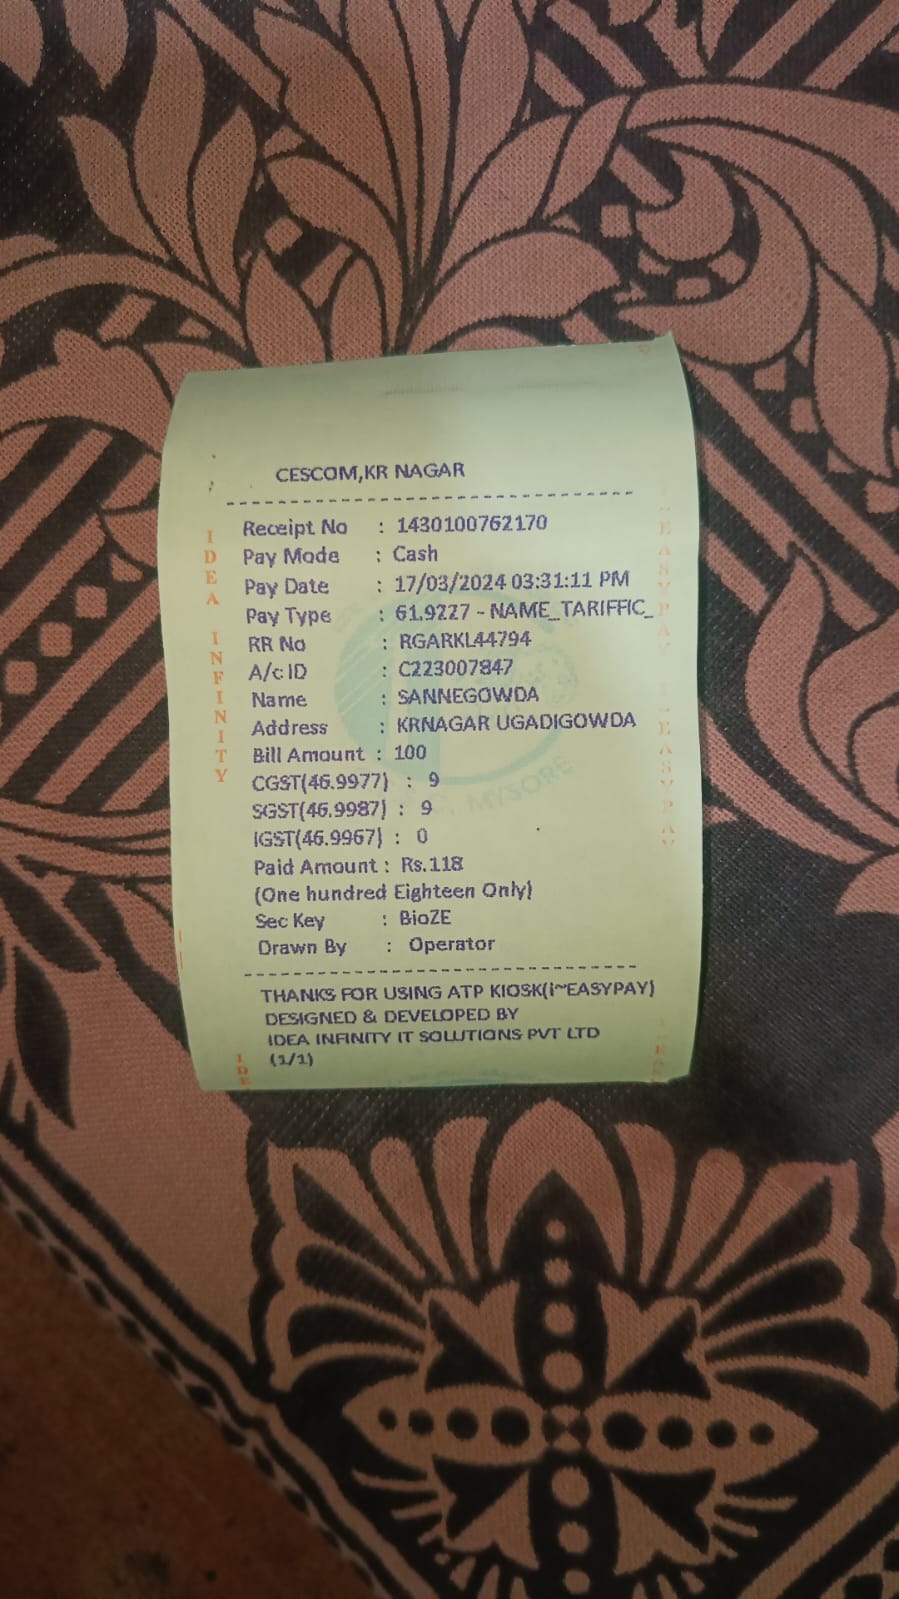 CESCOM,KR NAGAR
Receipt No : 1430100762170
Pay Mode : Cash
Pay Date : 17/03/2024 03:31:11 PM
Pay Type : 61.9227 - NAME_TARIFFIC_
RR No : RGARKL44794
A/c ID : C223007847
Name : SANNEGOWDA
Address : KRNAGAR UGADIGOWDA
Bill Amount : 100
CGST(46.9977) : 9
SGST(46.9987) : 9
IGST(46.9967) : 0
Paid Amount : Rs.118
(One hundred Eighteen Only)
Sec Key : BioZE
Drawn By : Operator
THANKS FOR USING ATP KIOSK(i~EASYPAY)
DESIGNED & DEVELOPED BY
IDEA INFINITY IT SOLUTIONS PVT LTD
(1/1)
IDEA INFINITY
I~EASYPAY I~EASYPAY
MYSORE
IDE